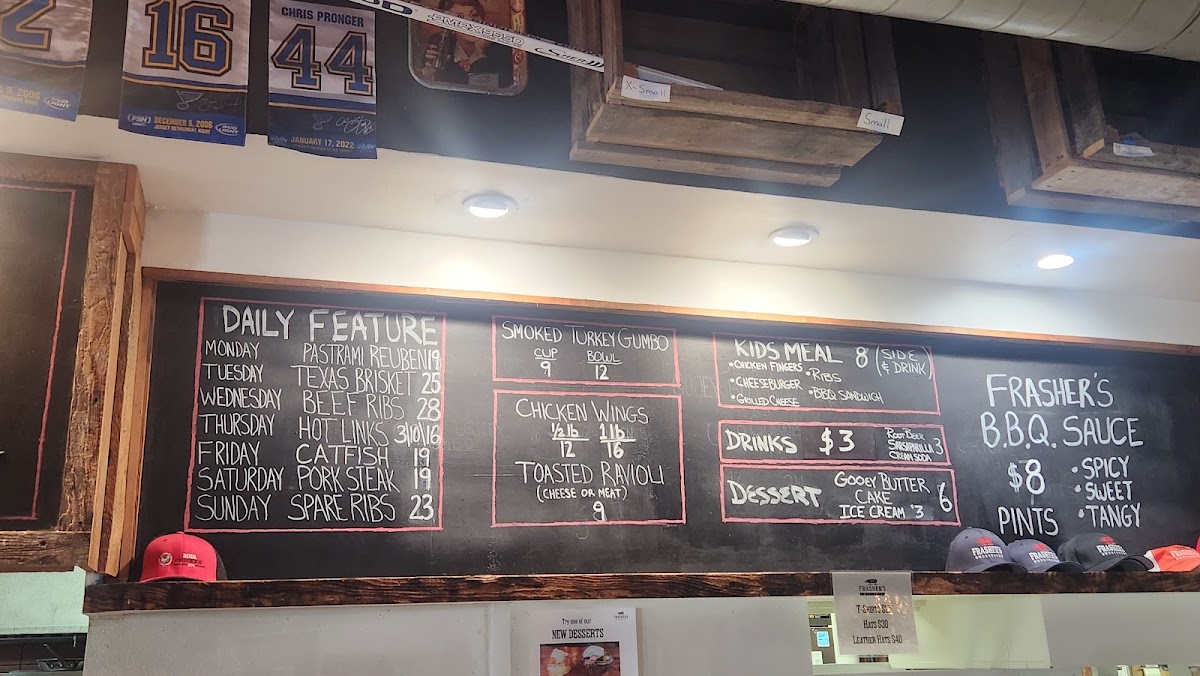 2
9, 2006
BUD LIGHT
16
FSN
DECEMBER 5, 2006
JERSEY RETIREMENT NIGHT
BUD LIGHT
CHRIS PRONGER
44
JANUARY 17, 2022
X-Small
Small
DAILY FEATURE
MONDAY PASTRAMI REUBEN 19
TUESDAY TEXAS BRISKET 25
WEDNESDAY BEEF RIBS 28
THURSDAY HOT LINKS 3/10/16
FRIDAY CATFISH 19
SATURDAY PORK STEAK 19
SUNDAY SPARE RIBS 23
SMOKED TURKEY GUMBO
CUP BOWL
9 12
CHICKEN WINGS
1/2 lb 1 lb
12 16
TOASTED RAVIOLI
(CHEESE OR MEAT)
9
KIDS MEAL 8 (SIDE & DRINK)
• CHICKEN FINGERS • RIBS
• CHEESEBURGER
• GRILLED CHEESE • BBQ SANDWICH
DRINKS $3
ROOT BEER
SARSAPARILLA 3
CREAM SODA
DESSERT GOOEY BUTTER CAKE 6
ICE CREAM $3
FRASHER'S
B.B.Q. SAUCE
$8 PINTS
• SPICY
• SWEET
• TANGY
FRASHER'S
FRASHER'S
FRASHER'S
HATS $30
LEATHER HATS $40
Try one of our
NEW DESSERTS